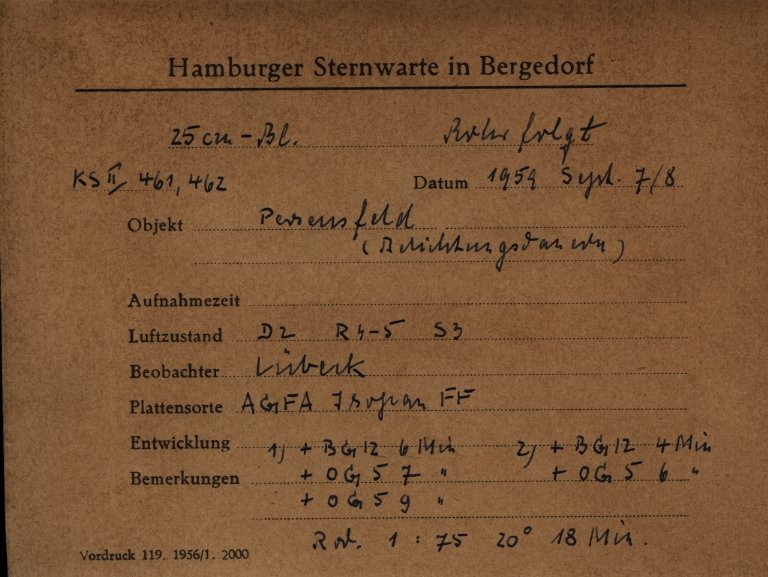 Hamburger Sternwarte in Bergedorf
25 cm - Bl. Rohr folgt
KS II 461, 462 Datum 1959 Sept. 7/8
Objekt Perseusfeld
(Belichtungsdauern)
Aufnahmezeit
Luftzustand D2 R4-5 S3
Beobachter Lübeck
Plattensorte AGFA Isopan FF
Entwicklung 1) + BG 12 6 Min 2) + BG 12 4 Min
Bemerkungen + OG 5 7 " + OG 5 6 "
+ OG 5 9 "
Rod. 1 : 75 20° 18 Min.
Vordruck 119. 1956/1. 2000